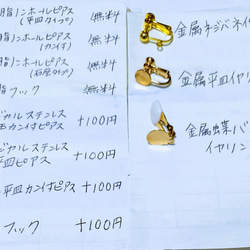 脂ノンホールピアス 無料
(平皿タイプ)
脂ノンホールピアス 無料
(カン付)
脂ノンホールピアス 無料
(石座タイプ)
脂フック 無料
ジカルステンレス
玉カン付ピアス +100円
ジカルステンレス
平皿ピアス +100円
平皿カン付ピアス +100円
フック +100円
金属ネジバネイヤ
金属平皿イヤリン
金属蝶バ
イヤリン